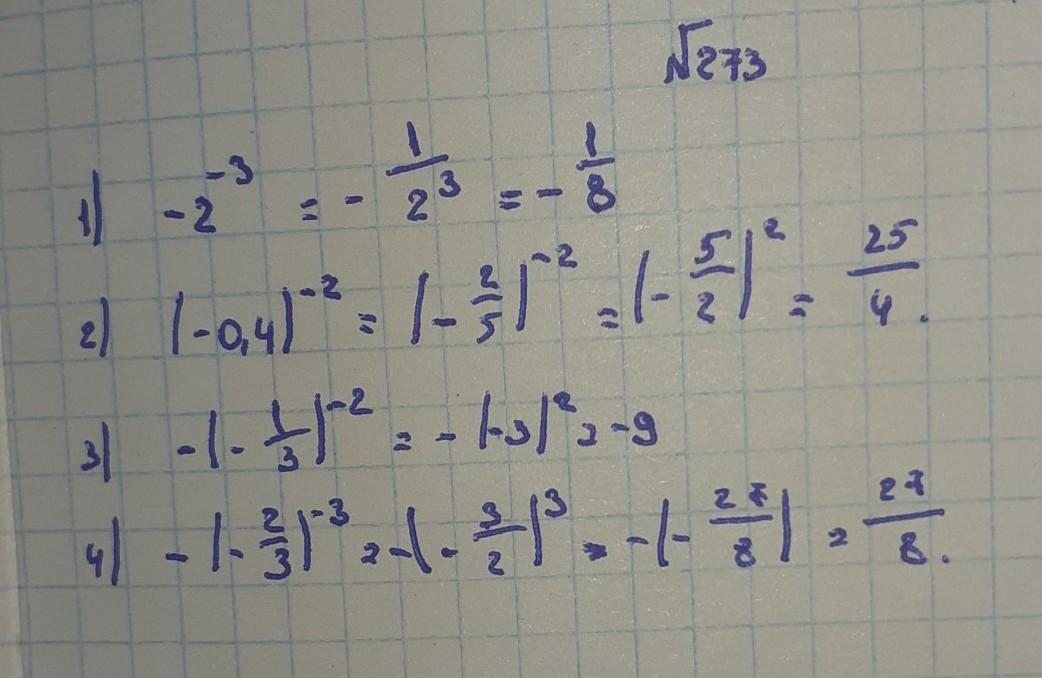 №273
1) -2^-3 = - 1/2^3 = - 1/8
2) (-0,4)^-2 = (- 2/5)^-2 = (- 5/2)^2 = 25/4.
3) -(- 1/3)^-2 = - (-3)^2 = -9
4) -(- 2/3)^-3 = -(- 3/2)^3 = -(- 27/8) = 27/8.